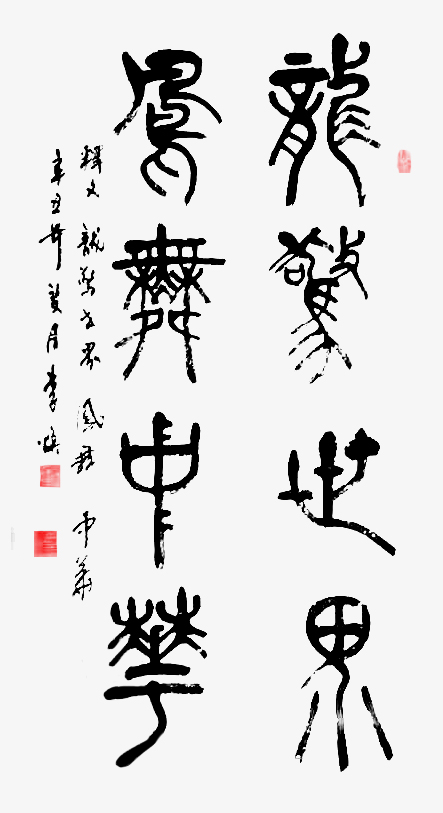 龍驚世界
鳳舞中華
釋文 龍驚世界 鳳舞 中華
辛丑年 夏月 李